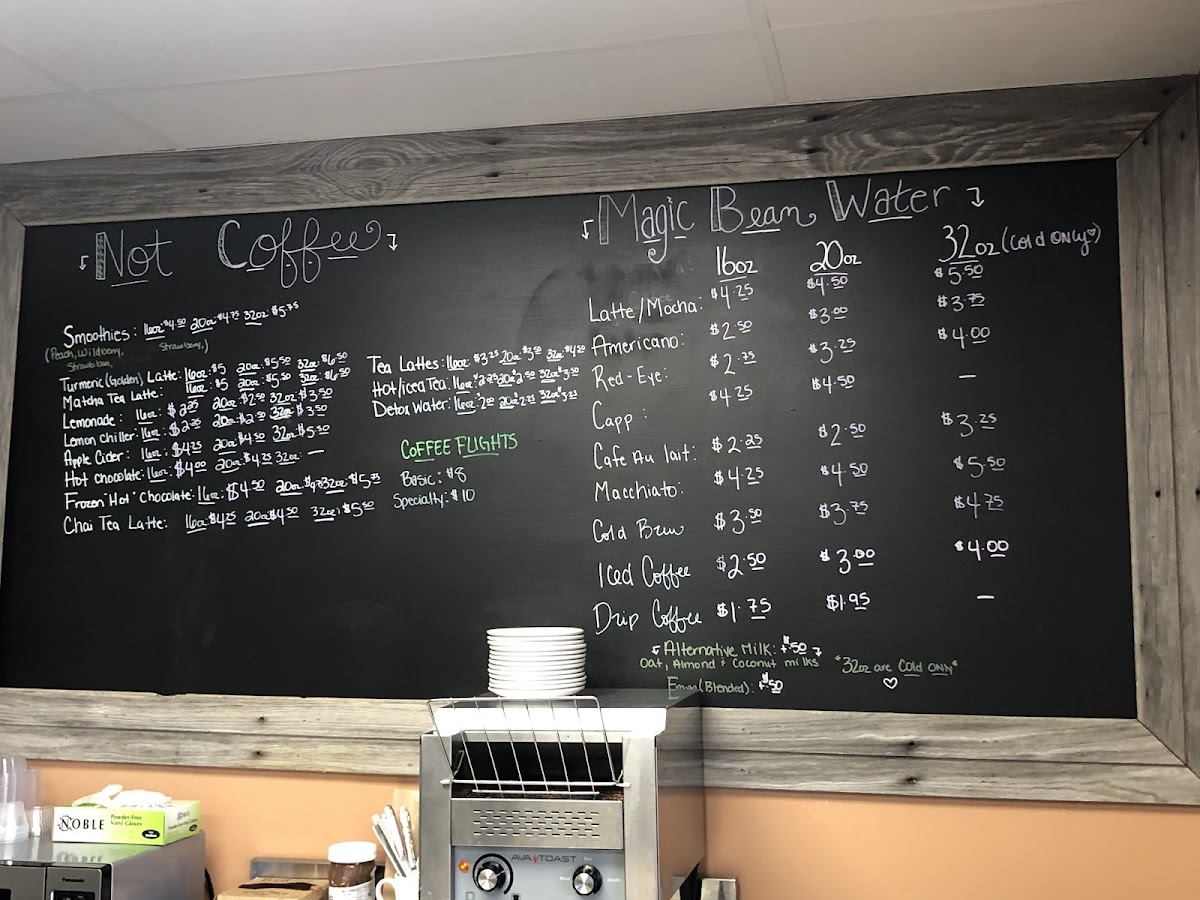 Not Coffee
Smoothies: 16oz: $4.50 20oz: $4.75 32oz: $5.75
(Peach, Wildberry, Strawberry,)
Turmeric (Golden) Latte: 16oz: $5 20oz: $5.50 32oz: $6.50
Matcha Tea Latte: 16oz: $5 20oz: $5.50 32oz: $6.50
Lemonade: 16oz: $2.25 20oz: $2.50 32oz: $3.50
Lemon Chiller: 16oz: $2.25 20oz: $2.50 32oz: $3.50
Apple Cider: 16oz: $4.25 20oz: $4.50 32oz: $5.50
Hot Chocolate: 16oz: $4.00 20oz: $4.25 32oz: —
Frozen "Hot" Chocolate: 16oz: $4.50 20oz: 32oz: $5.75
Chai Tea Latte: 16oz: $4.25 20oz: $4.50 32oz: $5.50
Tea Lattes: 16oz: $3.25 20oz: $3.50 32oz: $4.50
Hot/Iced Tea: 16oz: $2.25 20oz: $2.50 32oz: $3.50
Detox Water: 16oz: $2.00 20oz: $2.75 32oz: $3.25
COFFEE FLIGHTS
Basic: $8
Specialty: $10
Magic Bean Water
16oz 20oz 32oz (Cold ONLY♡)
Latte/Mocha: $4.25 $4.50 $5.50
Americano: $2.50 $3.00 $3.75
Red-Eye: $2.75 $3.25 $4.00
Capp: $4.25 $4.50 —
Cafe Au lait: $2.25 $2.50 $3.25
Macchiato: $4.25 $4.50 $5.50
Cold Brew $3.50 $3.75 $4.75
Iced Coffee $2.50 $3.00 $4.00
Drip Coffee $1.75 $1.95 —
Alternative Milk: +$.50
Oat, Almond + Coconut milks
*32oz are Cold ONLY*
(Blended): +$.50
NOBLE
Powder-Free
Vinyl Gloves
AVATOAST
Panasonic